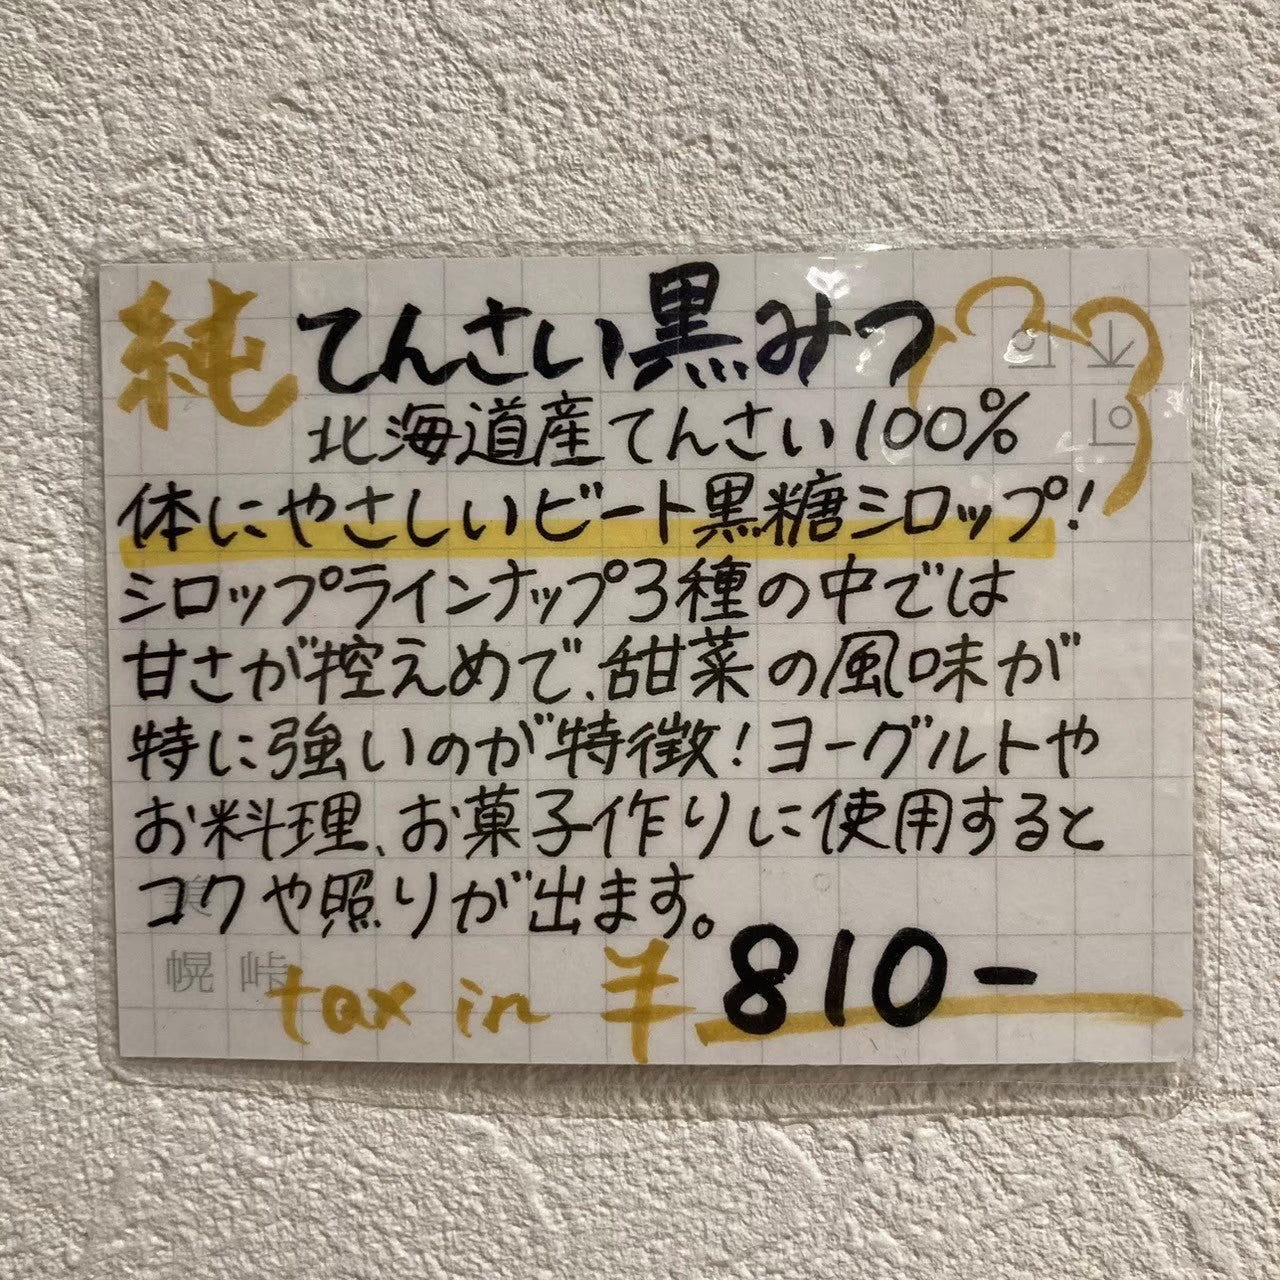 純 てんさい黒みつ
北海道産てんさい100%
体にやさしいビート黒糖シロップ!
シロップラインナップ3種の中では
甘さが控えめで、甜菜の風味が
特に強いのが特徴!ヨーグルトや
お料理、お菓子作りに使用すると
コクや照りが出ます。
美
幌 峠
tax in ¥810-